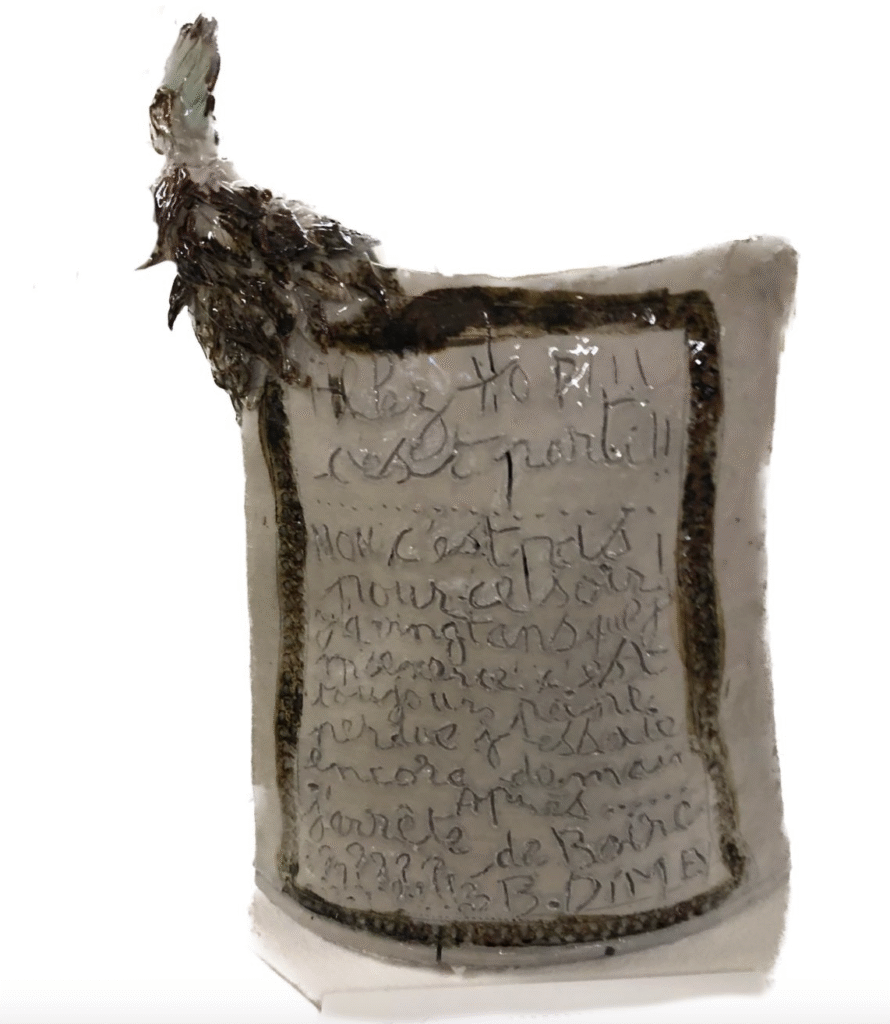 Allez HOP!!!
c'est parti!!
................
NON c'est pas
pour ce soir!
y a vingt ans que j
m'exerce c'est
toujours peine
perdue j'essaie
encore demain
Après......
j'arrête de Boire
?????!!? B. DIMEY